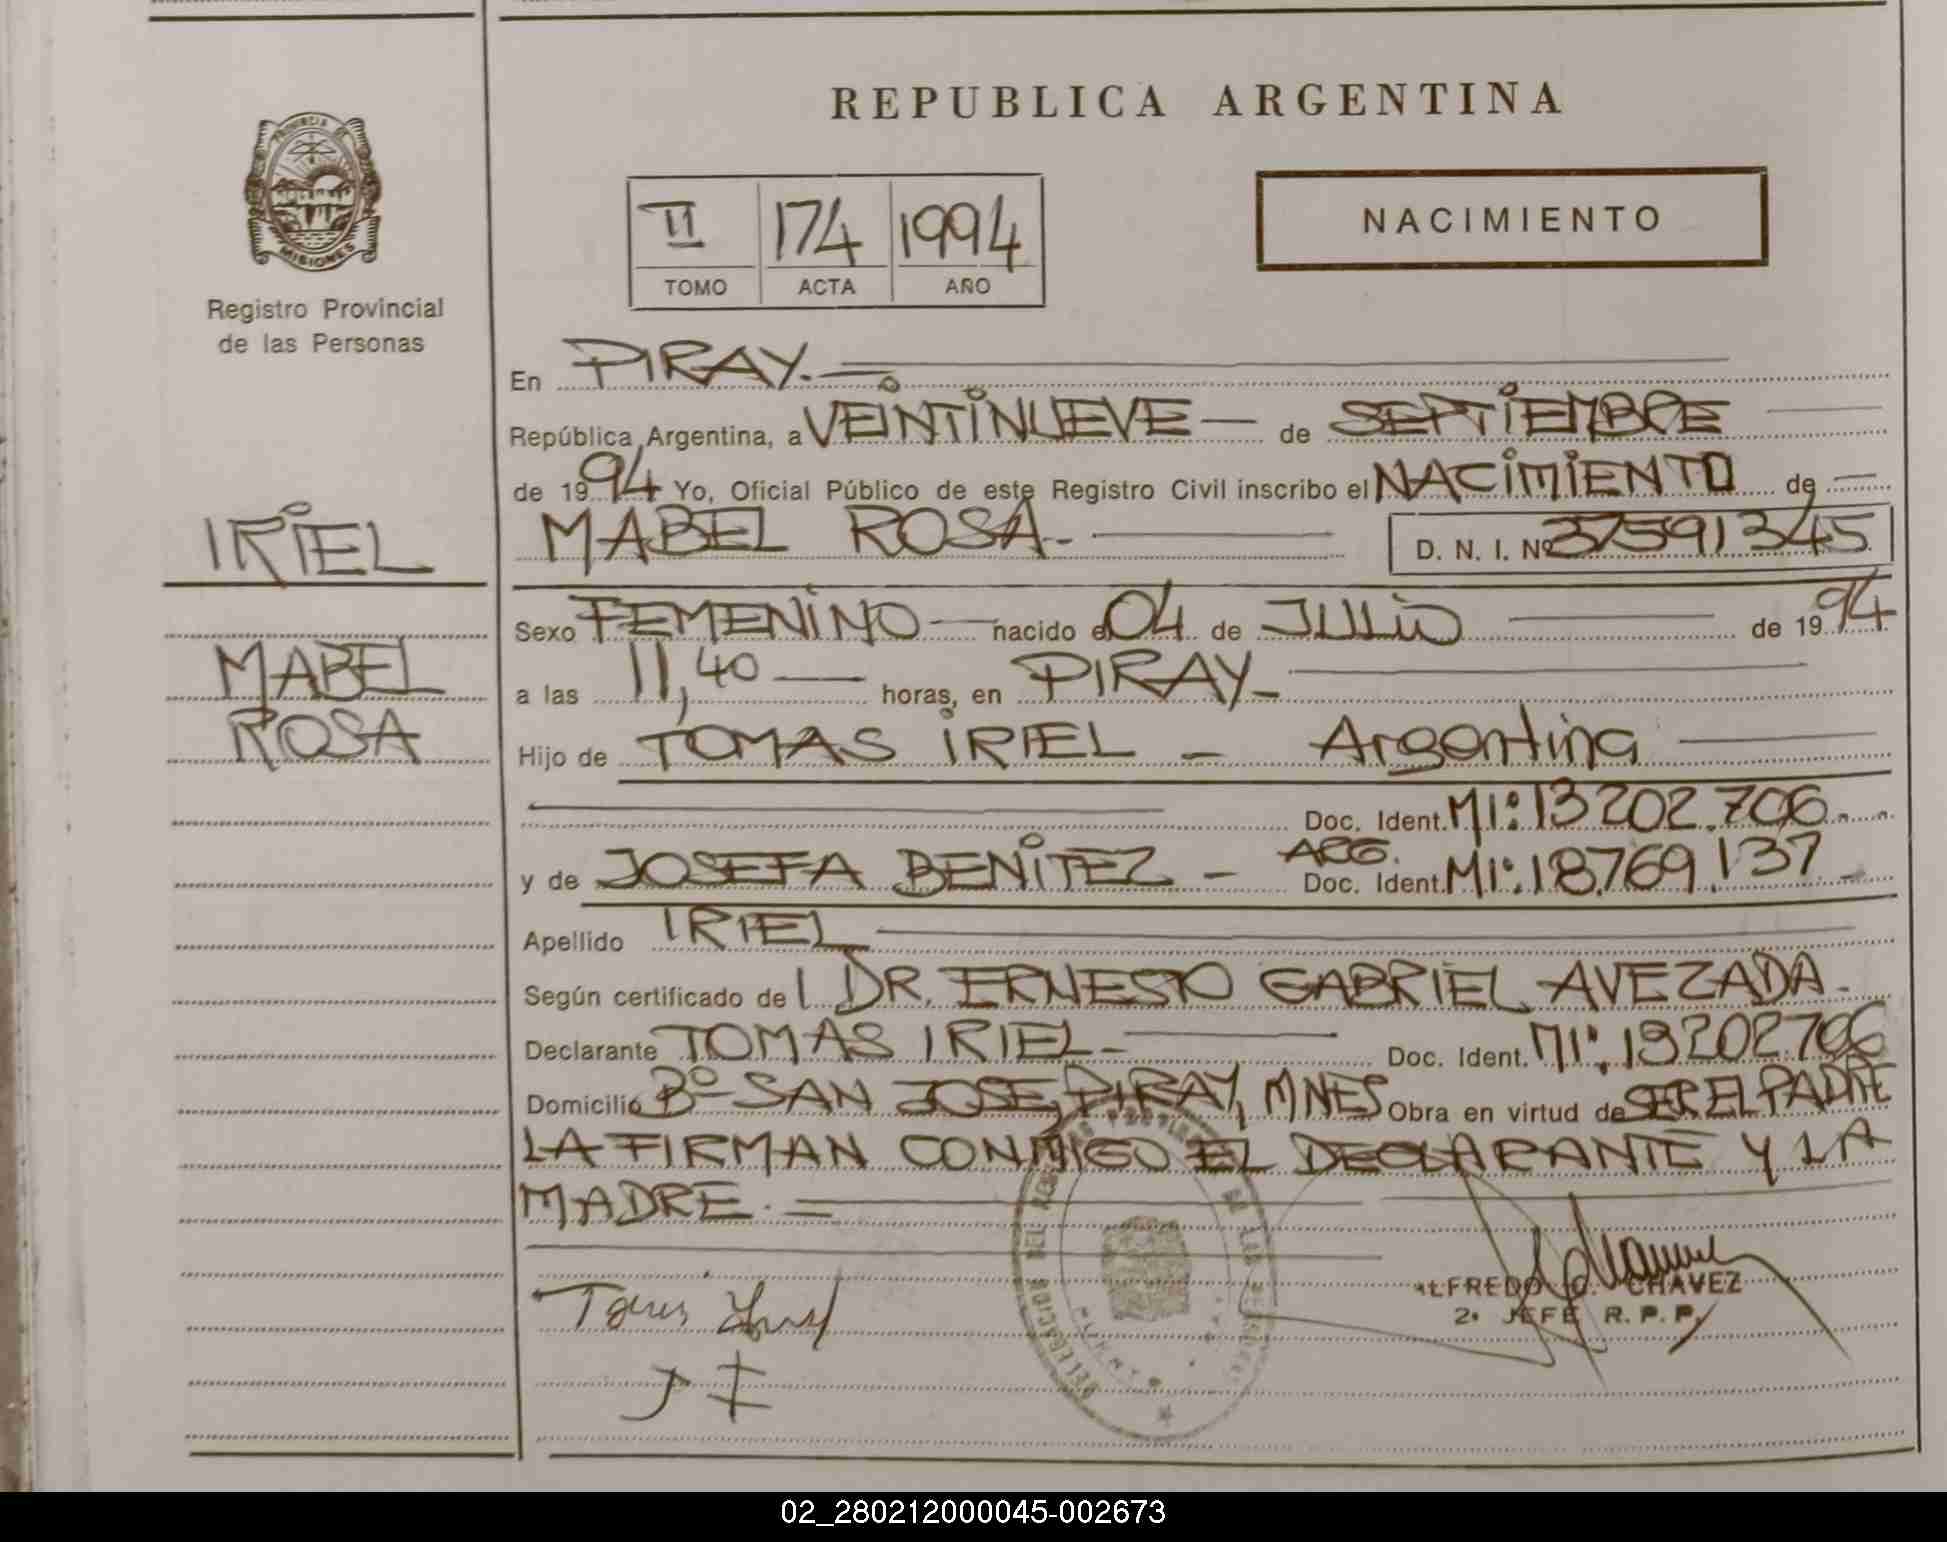 REPUBLICA ARGENTINA
PROVINCIA DE
MISIONES
Registro Provincial
de las Personas
II 174 1994
TOMO ACTA AÑO
NACIMIENTO
En PIRAY.
República Argentina, a VEINTINUEVE de SEPTIEMBRE
de 1994 Yo, Oficial Público de este Registro Civil inscribo el NACIMIENTO de
IRIEL
MABEL ROSA. D. N. I. Nº 37591345
Sexo FEMENINO nacido el 04 de JULIO de 1994
MABEL
a las 11,40 horas, en PIRAY
ROSA
Hijo de TOMAS IRIEL - Argentina
Doc. Ident. MI: 13202.706
y de JOSEFA BENITEZ - ARG. Doc. Ident. MI: 18.769.137
Apellido IRIEL
Según certificado de l DR. ERNESTO GABRIEL AVEZADA.
Declarante TOMAS IRIEL Doc. Ident. MI: 13202706
Domicilio Bº SAN JOSE, PIRAY, MNES Obra en virtud de SER EL PADRE
LA FIRMAN CONMIGO EL DECLARANTE Y LA
MADRE.
ALFREDO C. CHAVEZ
2º JEFE R.P.P.
J I
02_280212000045-002673